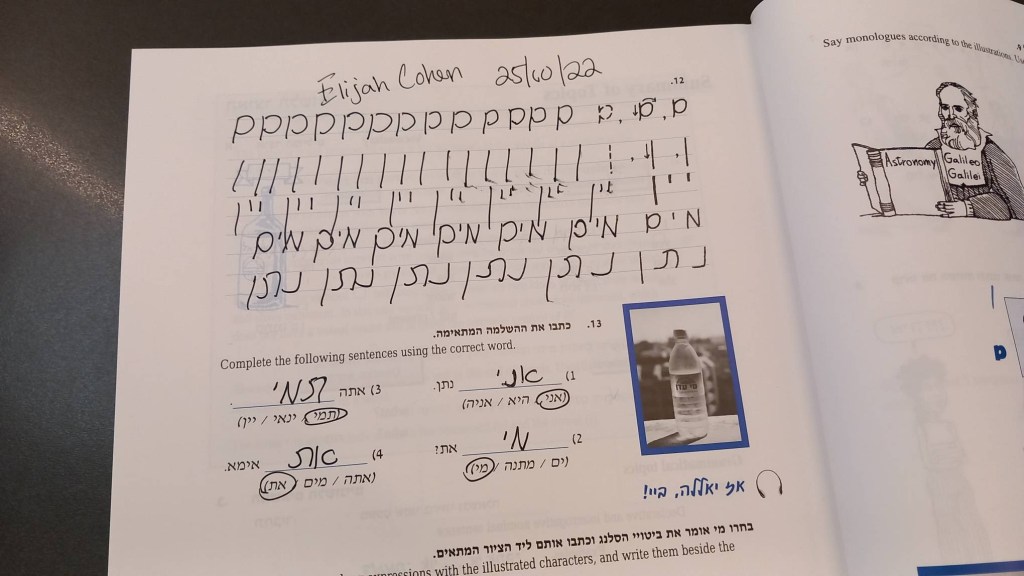 Elijah Cohen 25/10/22
.12
ם, ם, ם ם ם ם ם ם ם ם ם ם ם ם ם ם
י י ן יין יין יין יין יין יין יין יין
מ י ם מים מים מים מים מים מים
נ ת ן נתן נתן נתן נתן נתן
13. כתבו את ההשלמה המתאימה.
Complete the following sentences using the correct word.
1) אני נתן.
(אני / היא / אניה)
2) מי את?
(ים / מתנה / מי)
3) אתה תמי.
(תמי / ינאי / יין)
4) את אימא.
(אתה / מים / את)
מי עדן
אז יאללה, ביי!
בחרו מי אומר את ביטויי הסלנג וכתבו אותם ליד הציור המתאים.
expressions with the illustrated characters, and write them beside the
Say monologues according to the illustrations.
Astronomy
Galileo
Galilei
ם